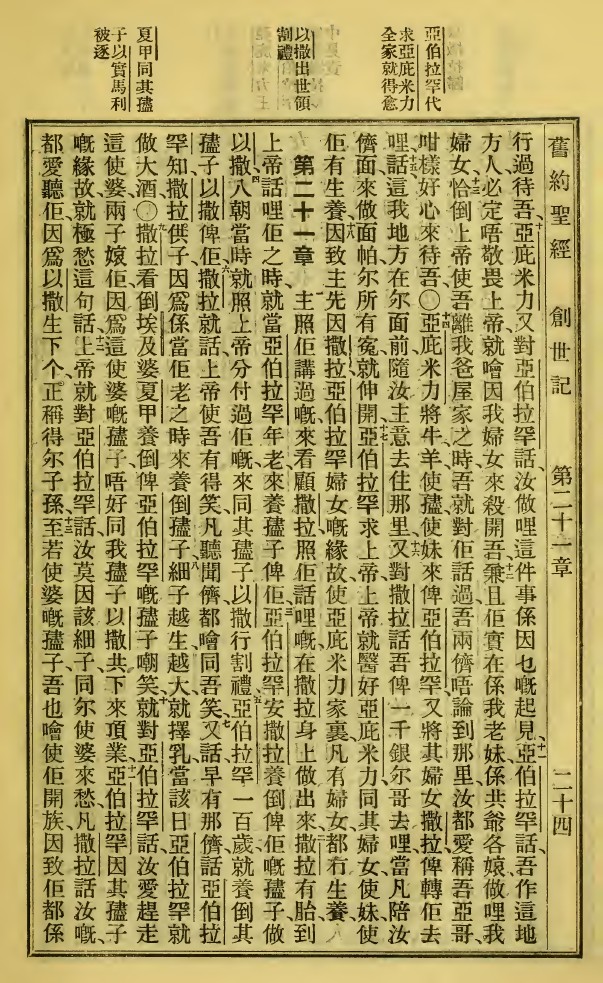 亞伯拉罕代
求亞庇米力
全家就得愈
以撒出世領
割禮
夏甲同其𡥧
子以實馬利
被逐
舊約聖經 創世記 第二十一章 二十四
行過待吾、十亞庇米力又對亞伯拉罕話、汝做哩這件事係因乜嘅起見、十一亞伯拉罕話、吾作這地
方人必定唔敬畏上帝、就噲因我婦女來殺開吾、十二兼且佢實在係我老妹、係共爺各娘做哩我
婦女、十三恰倒上帝使吾離我爸屋家之時、吾就對佢話過、吾兩儕唔論到那里、汝都愛稱吾亞哥、
咁樣好心來待吾〇十四亞庇米力將牛羊使𡥧使妹、來俾亞伯拉罕、又將其婦女撒拉俾轉佢去
哩、十五話、這我地方在尔面前、隨汝主意去住那里、十六又對撒拉話、吾俾一千銀尔哥去哩、當凡陪汝
儕面來做面帕、尔所有寃就伸開、十七亞伯拉罕求上帝、上帝就醫好亞庇米力、同其婦女使妹、使
佢有生養、十八因致主先因撒拉亞伯拉罕婦女嘅緣故、使亞庇米力家裏凡有婦女都冇生養、
第二十一章 主照佢講過嘅來看顧撒拉、照佢話哩嘅在撒拉身上做出來、二撒拉有胎、到
上帝話哩佢之時、就當亞伯拉罕年老來養𡥧子俾佢、三亞伯拉罕安撒拉養倒俾佢嘅𡥧子做
以撒、四八朝當時、就照上帝分付過佢嘅、來同其𡥧子以撒行割禮、五亞伯拉罕一百歲、就養倒其
𡥧子以撒俾佢、六撒拉就話、上帝使吾有得笑、凡聽聞儕都噲同吾笑、七又話、早有那儕話亞伯拉
罕知、撒拉供子、因爲係當佢老之時、來養倒𡥧子、八細子越生越大、就擇乳、當該日亞伯拉罕就
做大酒〇九撒拉看倒埃及婆夏甲、養倒俾亞伯拉罕嘅𡥧子嘲笑、十就對亞伯拉罕話、汝愛趕走
這使婆兩子娘佢、因爲這使婆嘅𡥧子、唔好同我𡥧子以撒共下來頂業、十一亞伯拉罕因其𡥧子
嘅緣故、就極愁這句話、十二上帝就對亞伯拉罕話、汝莫因該細子同尔使婆來愁、凡撒拉話汝嘅、
都愛聽佢、因爲以撒生下个、正稱得尔子孫、十三至若使婆嘅𡥧子、吾也噲使佢開族、因致佢都係